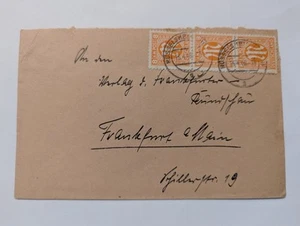 An den
Verlag d. Frankfurter
Rundschau
Frankfurt a Main
Schillerstr. 19